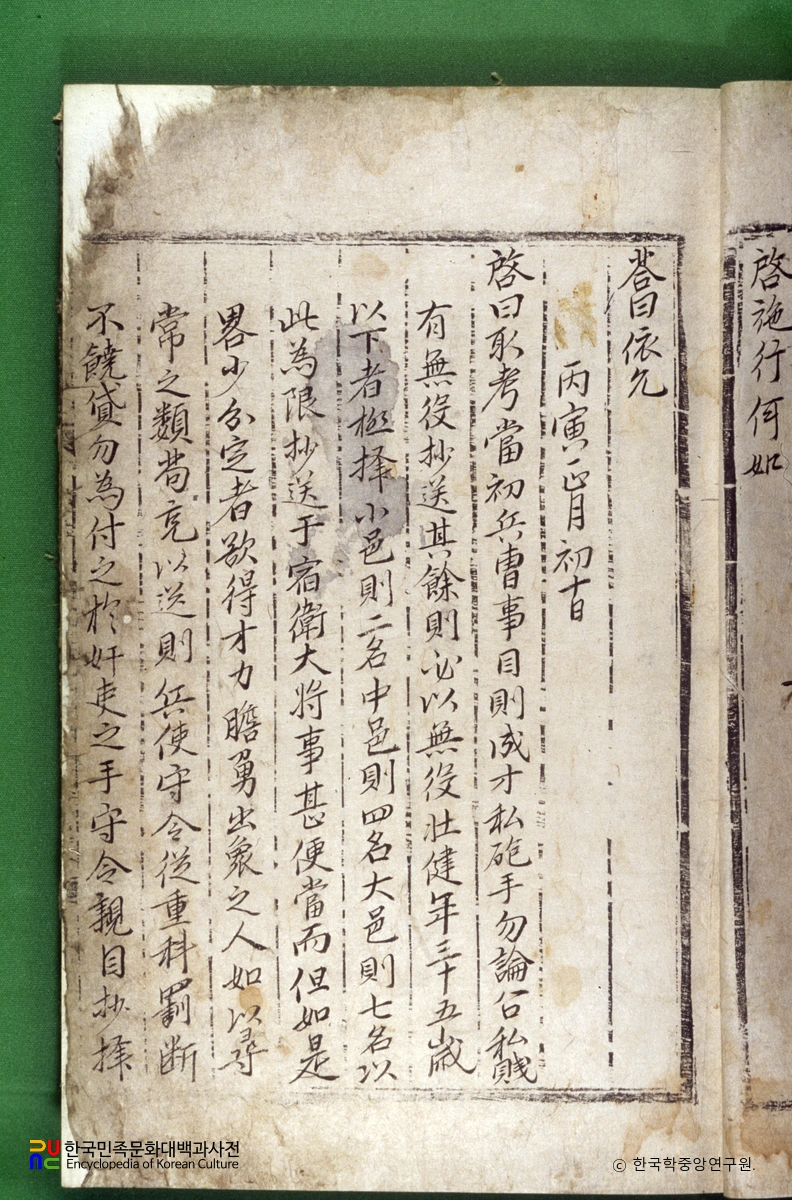 啓施行何如
答曰依允
丙寅正月初十日
啓曰取考當初兵曹事目則成才私砲手勿論公私賤
有無役抄送其餘則必以無役壯健年三十五歲
以下者極擇小邑則二名中邑則四名大邑則七名以
此為限抄送于宿衛大將事甚便當而但如是
畧少分定者欲得才力膽勇出衆之人如以尋
常之類苟充以送則兵使守令從重科罰斷
不饒貸勿為付之於奸吏之手守令親自抄擇
한국민족문화대백과사전
Encyclopedia of Korean Culture
ⓒ 한국학중앙연구원.